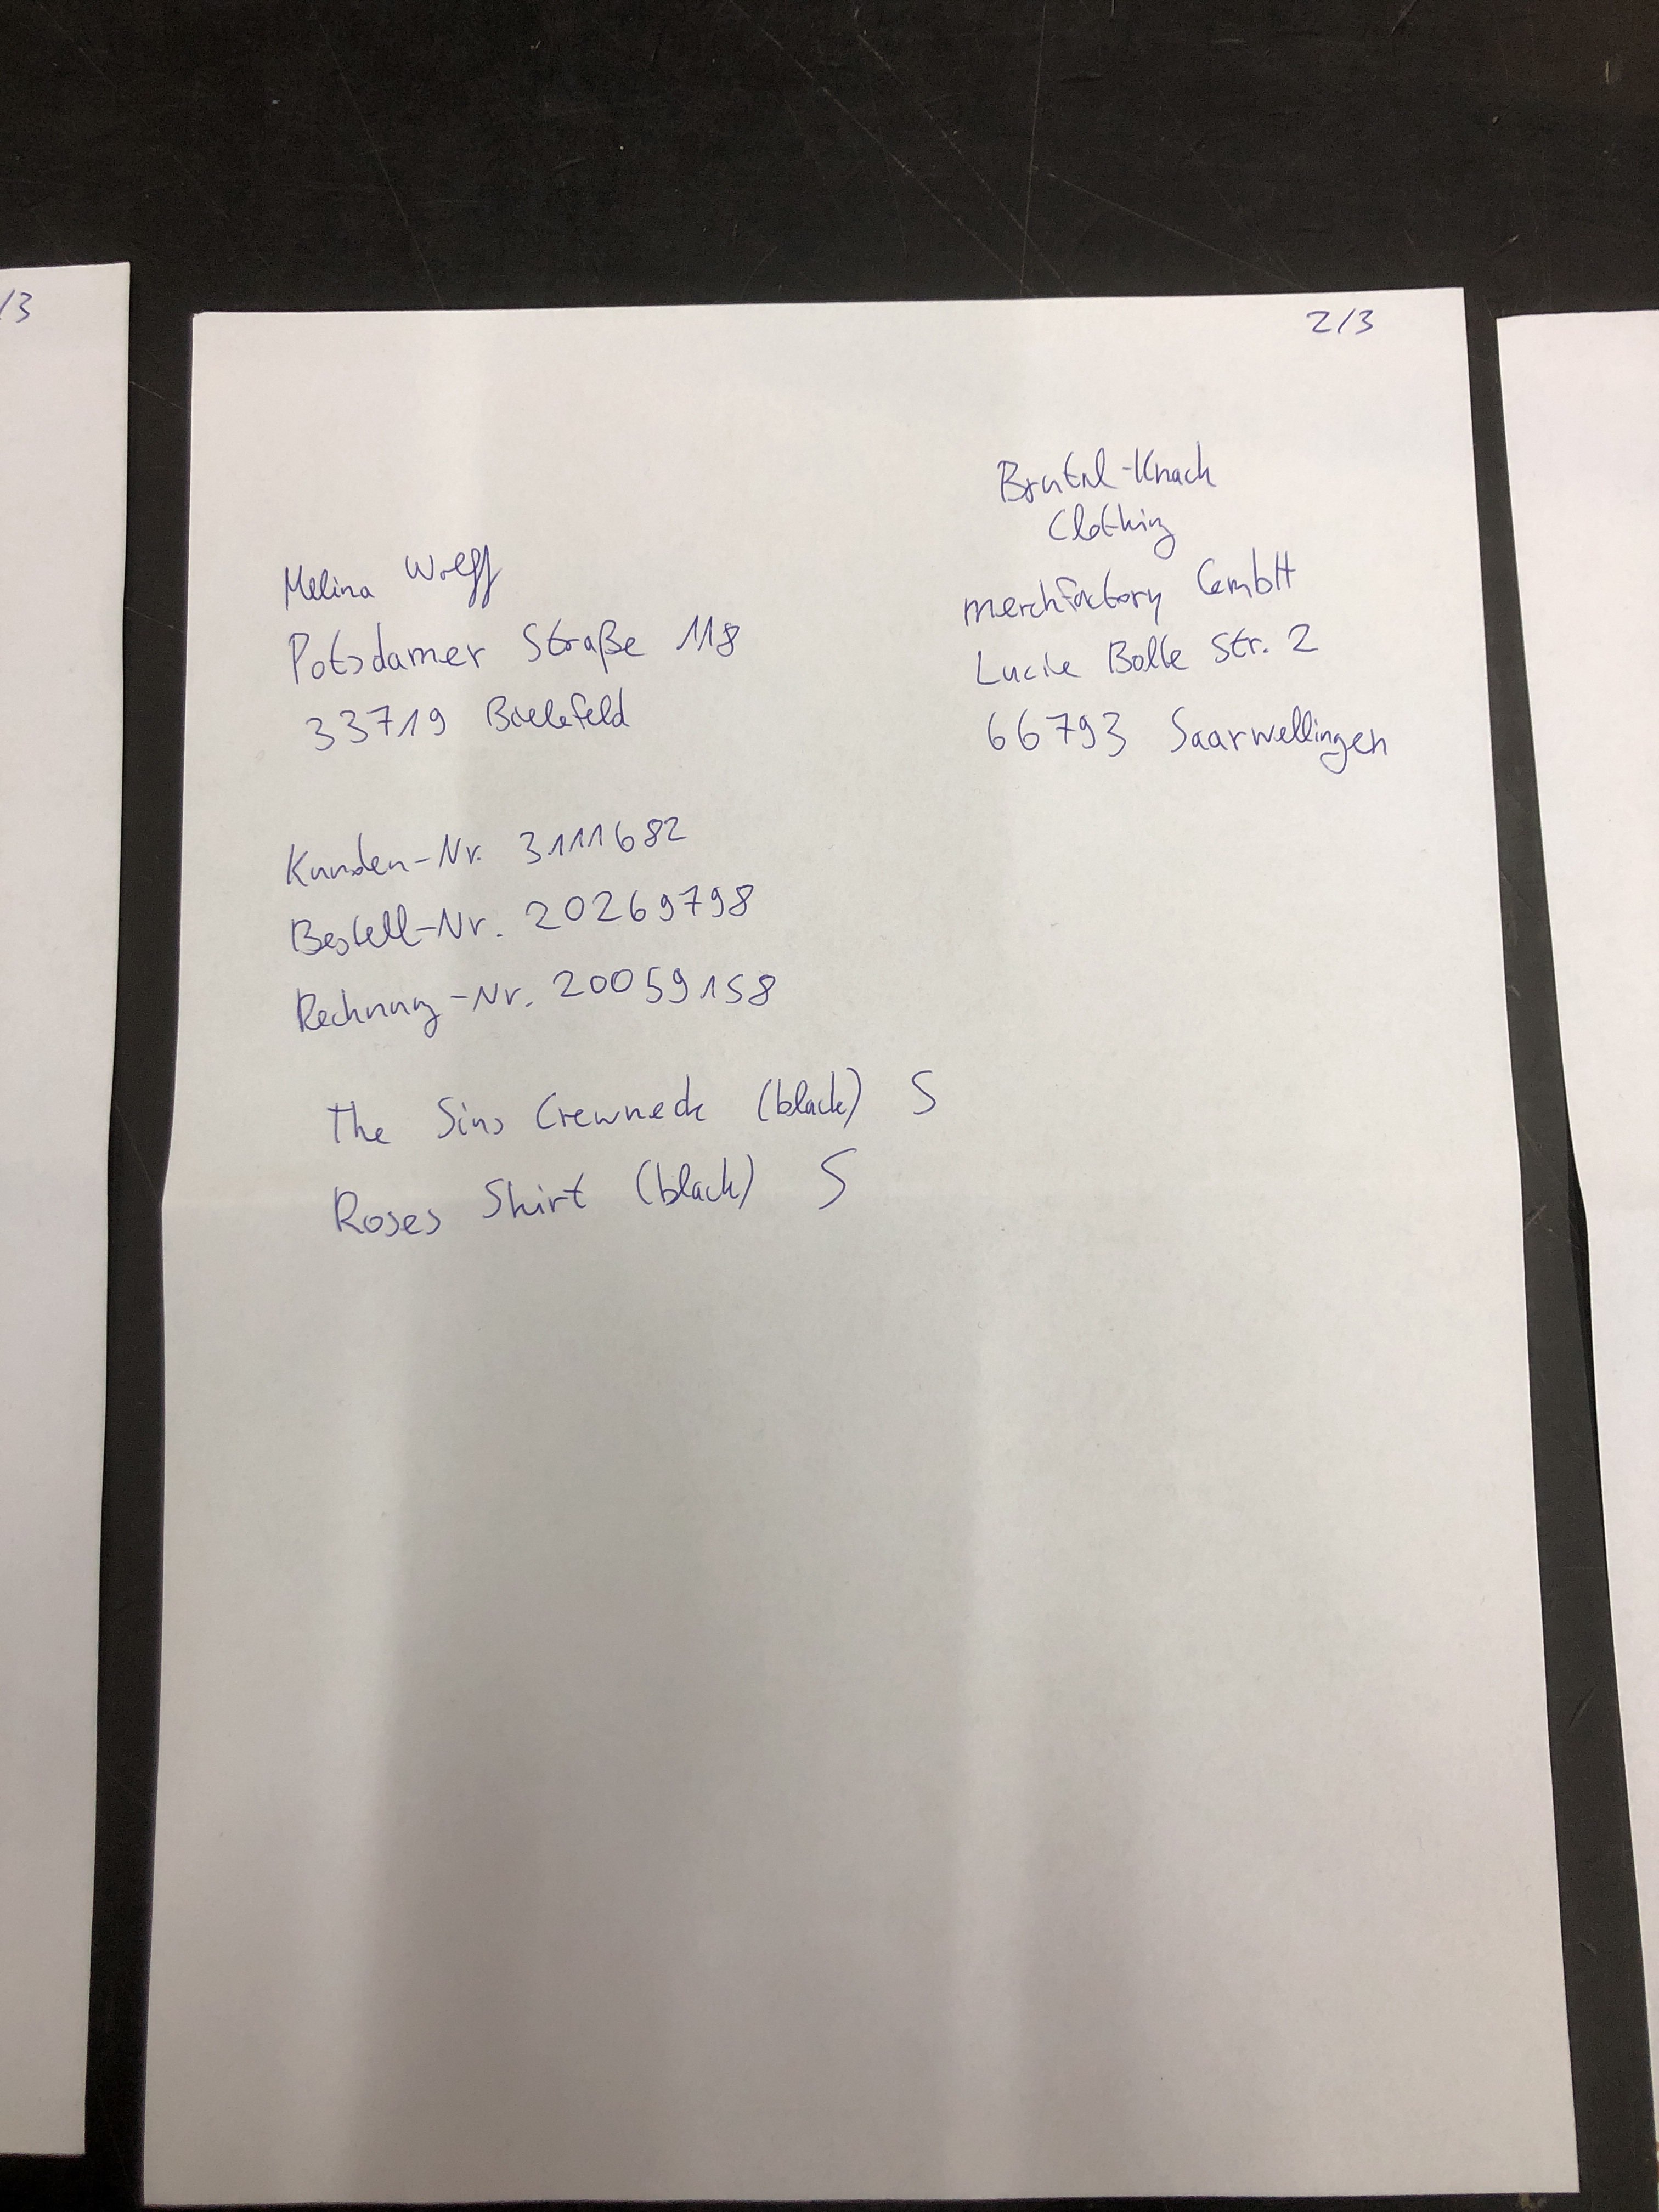 /3
2/3
Brutal-Knack
Clothing
merchfactory GmbH
Lucile Bolle Str. 2
66793 Saarwellingen
Melina Wolff
Potsdamer Straße 118
33719 Bielefeld
Kunden-Nr. 3111682
Bestell-Nr. 20269798
Rechnung-Nr. 20059158
The Sins Crewneck (black) S
Roses Shirt (black) S